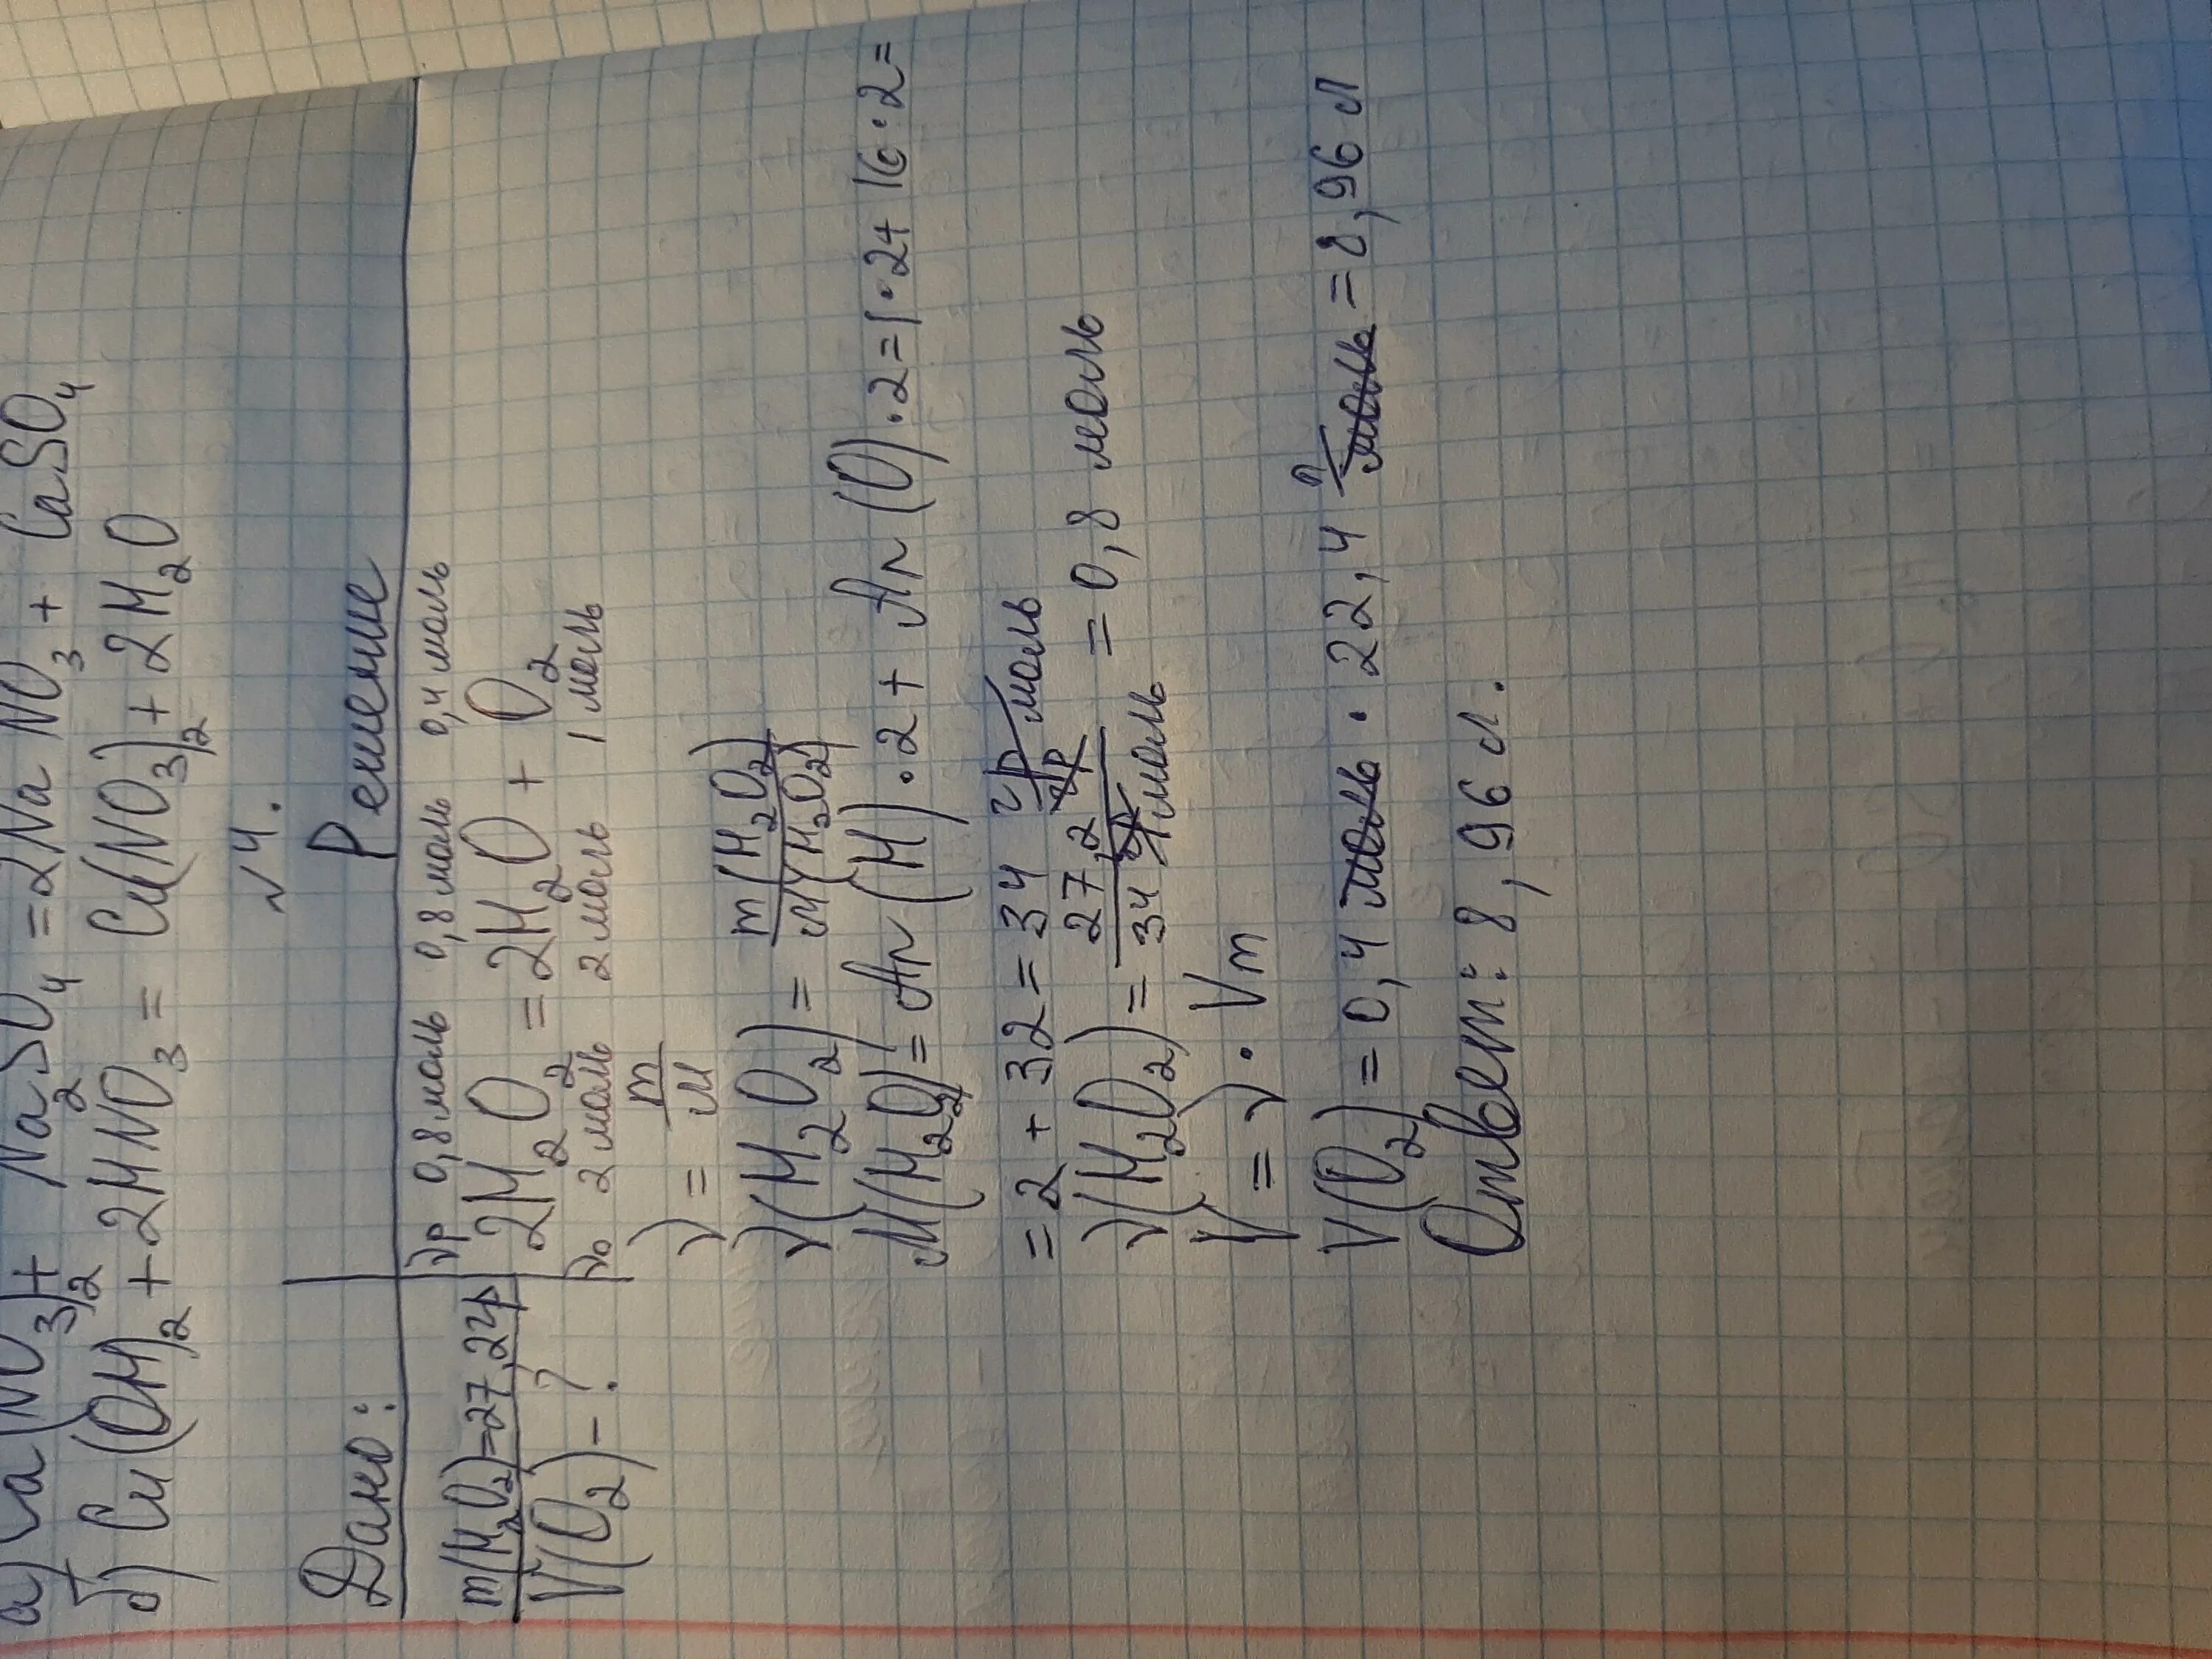 а) Ca(NO3)2 + Na2SO4 = 2NaNO3 + CaSO4
б) Cu(OH)2 + 2HNO3 = Cu(NO3)2 + 2H2O
№4.
Дано: Решение
νр 0,8 моль 0,8 моль 0,4 моль
m(H2O2)=27,2гр 2H2O2 = 2H2O + O2
V(O2) - ? ν0 2 моль 2 моль 1 моль
ν = m/M
ν(H2O2) = m(H2O2)/M(H2O2)
M(H2O2) = Ar(H)·2 + Ar(O)·2 = 1·2+ 16·2 =
= 2 + 32 = 34 гр/моль
ν(H2O2) = 27,2 гр / 34 гр/моль = 0,8 моль
V = ν · Vm
V(O2) = 0,4 моль · 22,4 л/моль = 8,96 л
Ответ: 8,96 л.